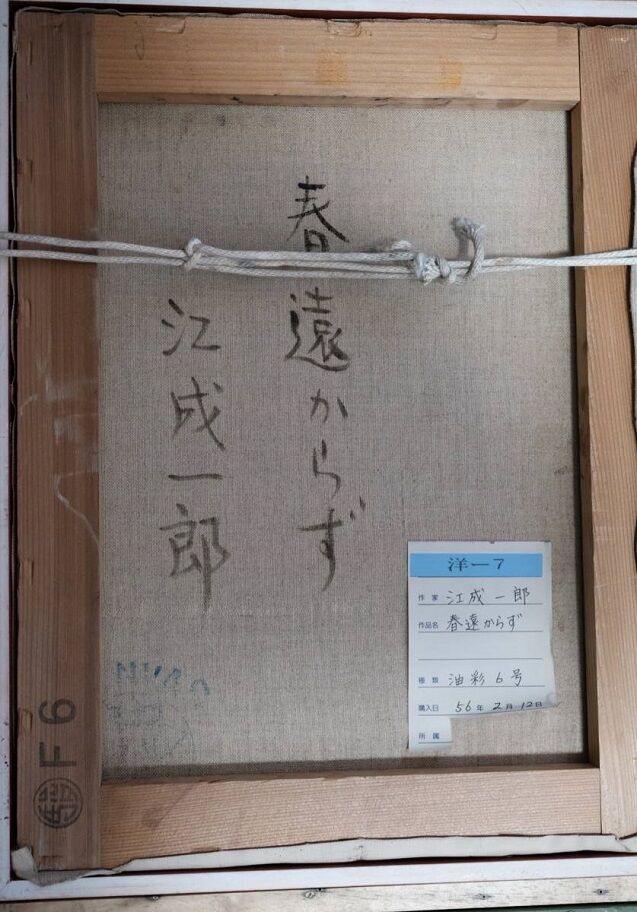 春遠からず
江成一郎
洋一7
作家 江成一郎
作品名 春遠からず
種類 油彩6号
購入日 56年2月12日
所属
F6